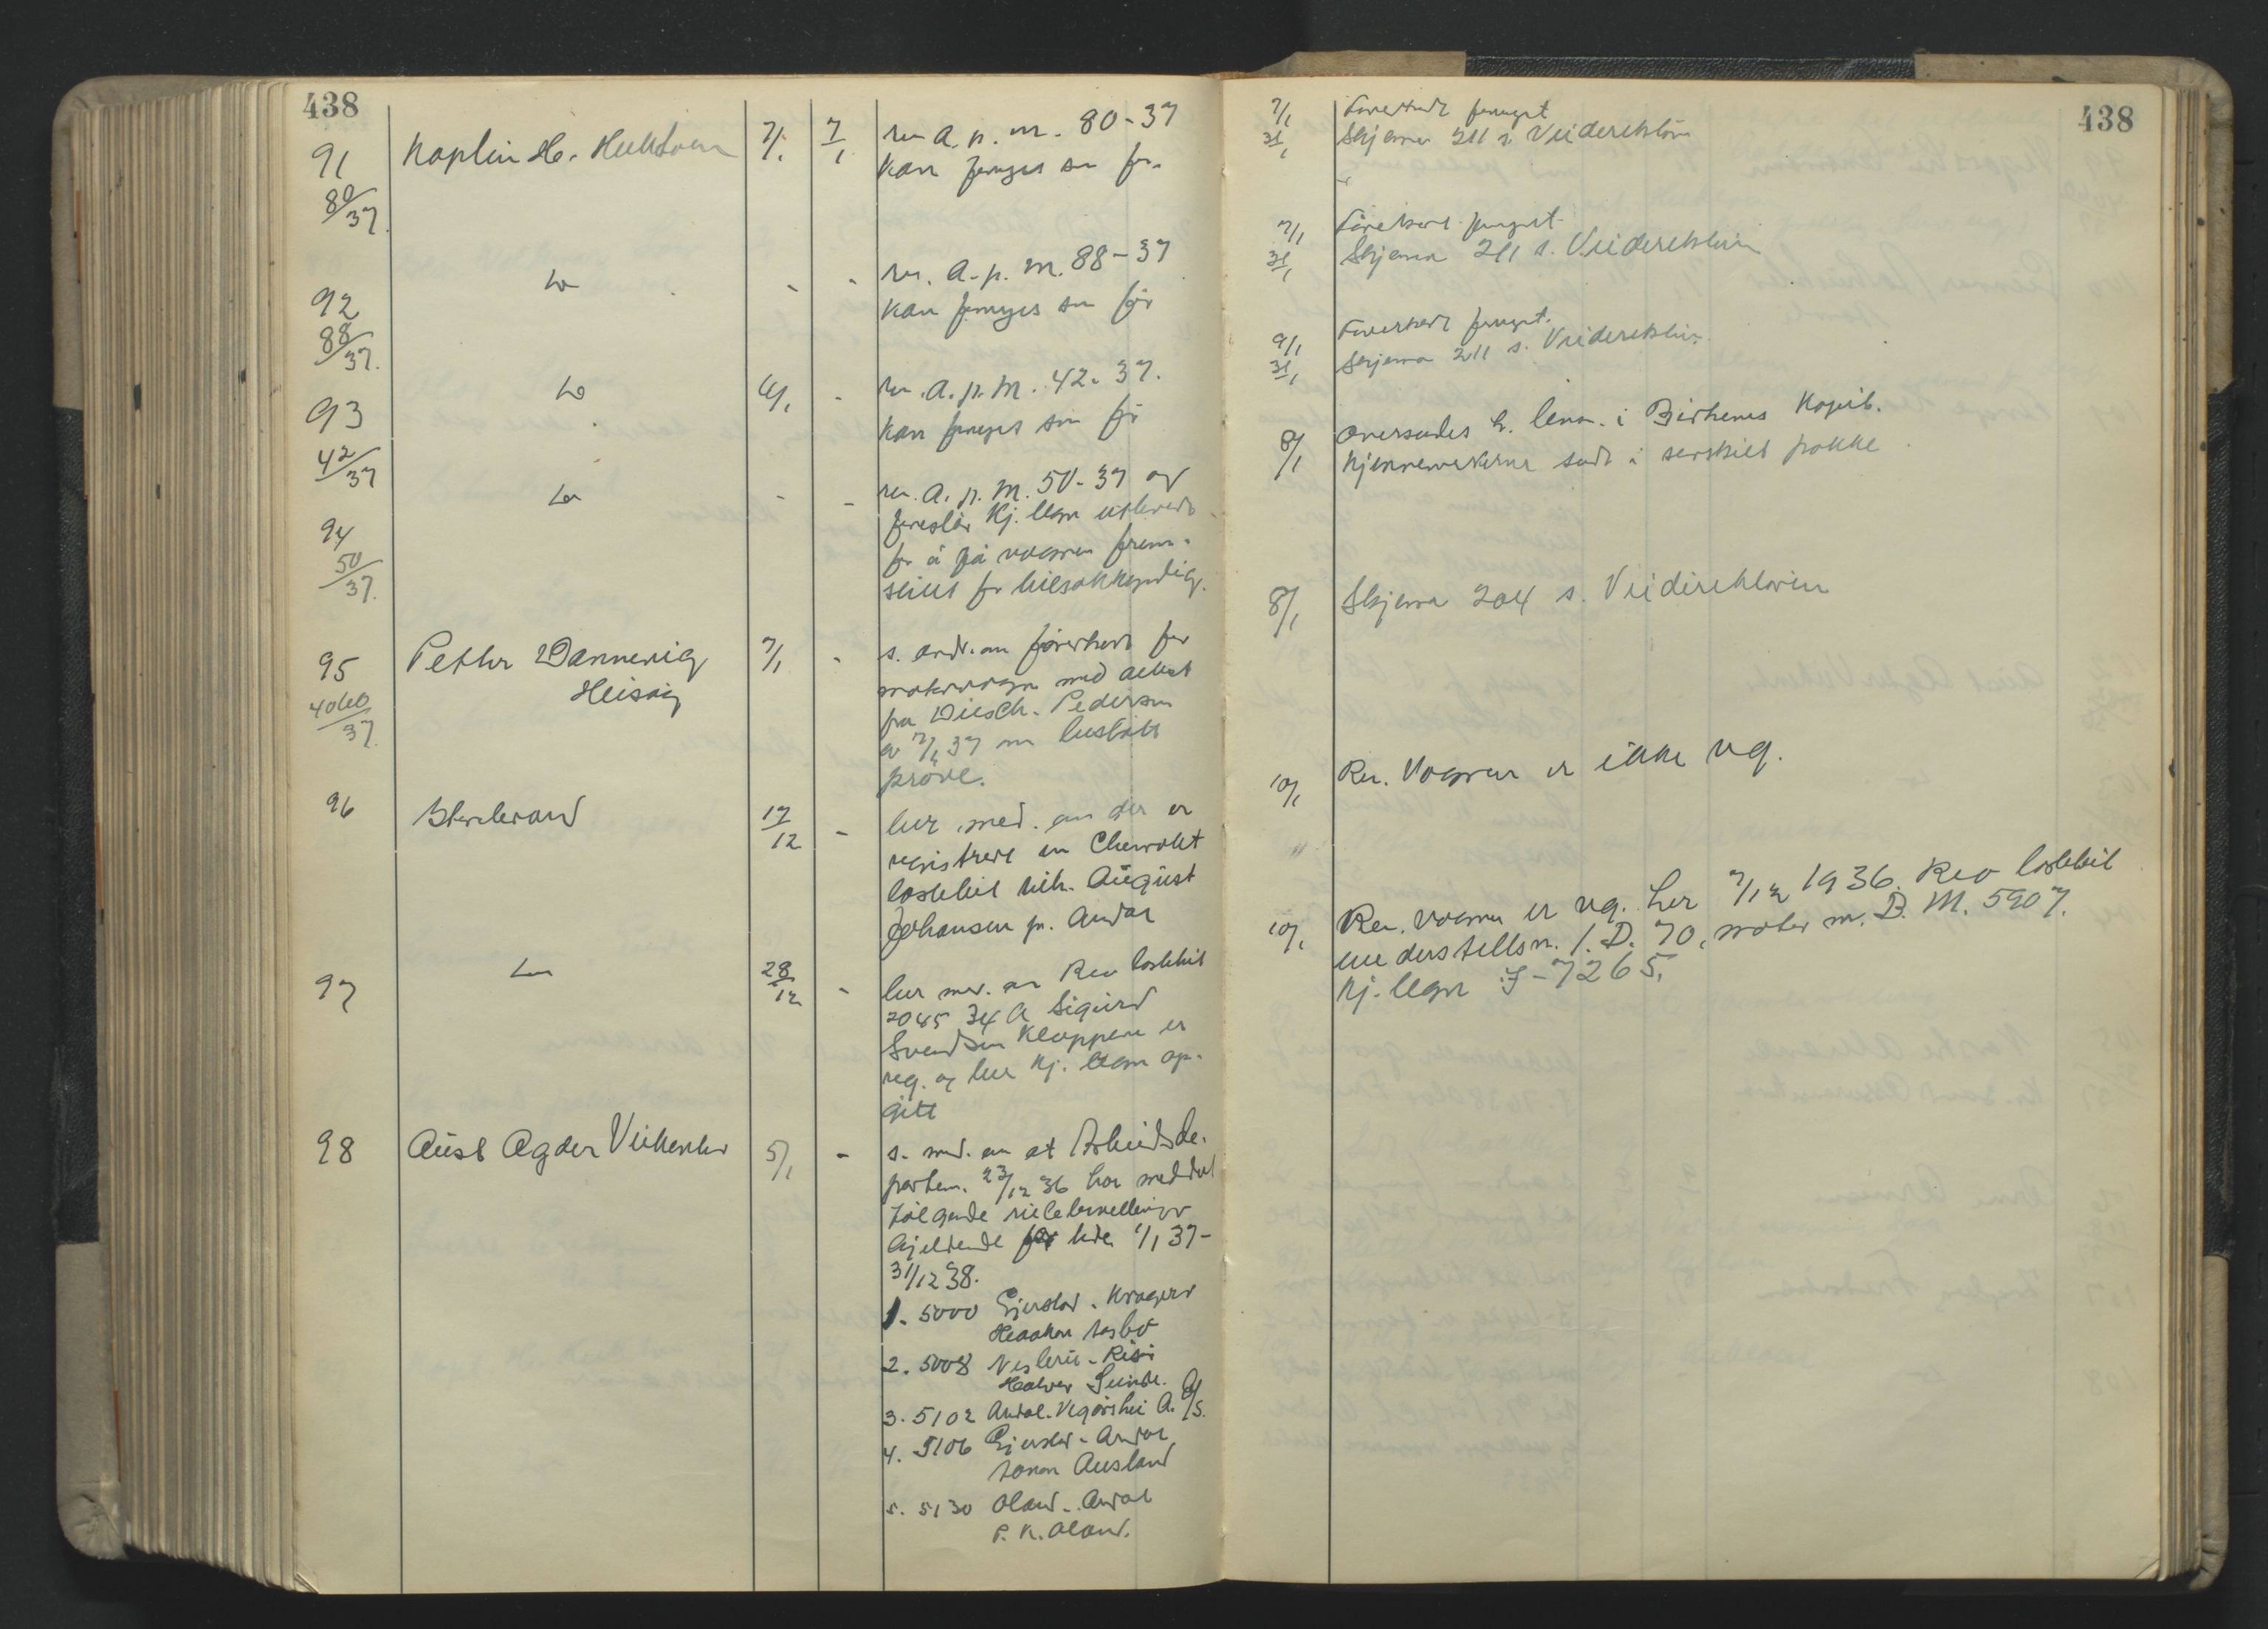 438
91
80/37
7/1
7/1
rer. a. p. m. 80-37
kan fornyes som før
92
88/37.
do
-
-
rer. a. p. m. 88-37
kan fornyes som før
93
42/37
do
6/1
-
rer. a. p. m. 42-37.
kan fornyes som før
94
50/37.
do
-
-
rer. a. p. m. 50-37 og
foreslår kj. tegn
for å få vognen frem-
stillet for bilsakkyndig.
95
4060/37.
Petter Dannevig
Heisvig
7/1
-
s. andr. om førerkort for
motorvogn med attest
fra Diesch. Pedersen
av 7/1 37 om bestått
prøve.
96
17/12
-
ber med. om der er
registrert en Chevrolet
lastebil tilh. August
Johansen pr. Arendal
97
do
28/12
-
ber med. om Reo lastebil
2045 34 A Sigurd
Svendsen Kloppene er
reg. og ber kj. tegn op-
gitt
98
Aust Agder Veikontor
5/1
-
s. med. om at Arbeidsde-
partem. 23/12 36 har meddelt
følgende rutebevillinger
gjeldende for tiden 1/1 37-
31/12 38.
1. 5000 Gjerstad - Kragerø
Haakon
2. 5008 - Risør
Halvor Sunde.
3. 5102 Arendal-Vegårshei A. A/S.
4. 5106 Gjerstad - Arendal
Ausland
5. 5130 Oland - Arendal
P. K. Oland.
438
7/1 Førerkort fornyet
31/1 Skjema 211 s. Veidirektøren
7/1 Førerkort fornyet
31/1 Skjema 211 s. Veidirektøren
9/1 Førerkort fornyet.
31/1 Skjema 211 s. Veidirektøren
8/1 Oversendes h. lensm. i Birkenes
Kjennemerkerne sendt i særskilt pakke
8/1 Skjema 204 s. Veidirektøren
10/1 Rer. Vognen er ikke reg.
10/1 Rer. vognen er reg. her 7/12 1936. Reo lastebil
understellsnr. 1. D. 70, motor nr. B. M. 5907.
kj. tegn I-7265.